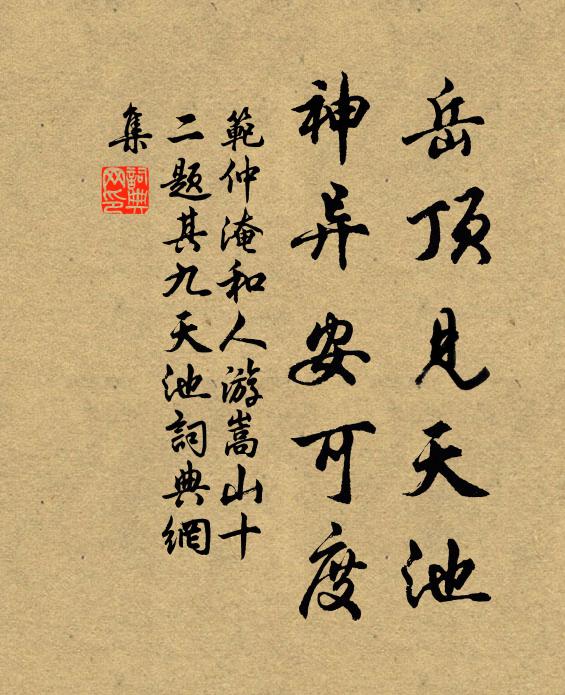 岳顶见天池
神异安可度
範仲淹和人游嵩山十
二题其九天池詞典網
集
詞典
网印